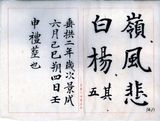 嶺風悲
白楊其五
垂拱二年歲次景戌
六月己巳朔四日壬
申禮葬也